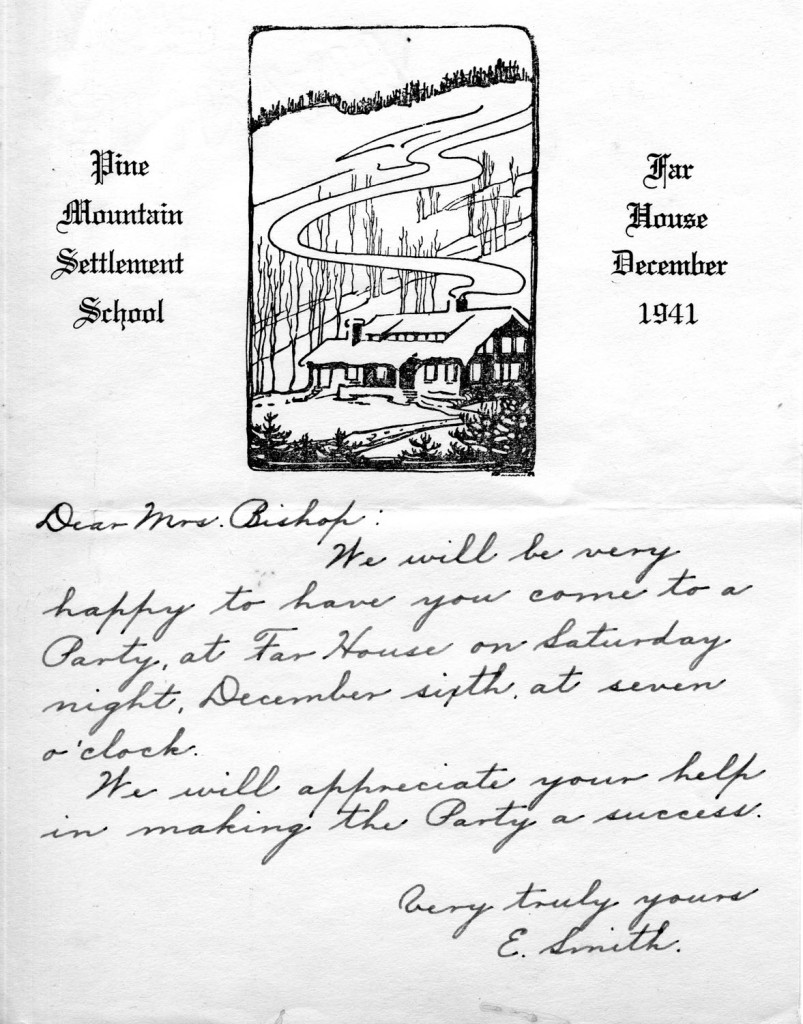 Pine
Mountain
Settlement
School
Far
House
December
1941
Dear Mrs. Bishop:
We will be very
happy to have you come to a
Party, at Far House on Saturday
night, December sixth, at seven
o'clock.
We will appreciate your help
in making the Party a success.
Very truly yours
E. Smith.